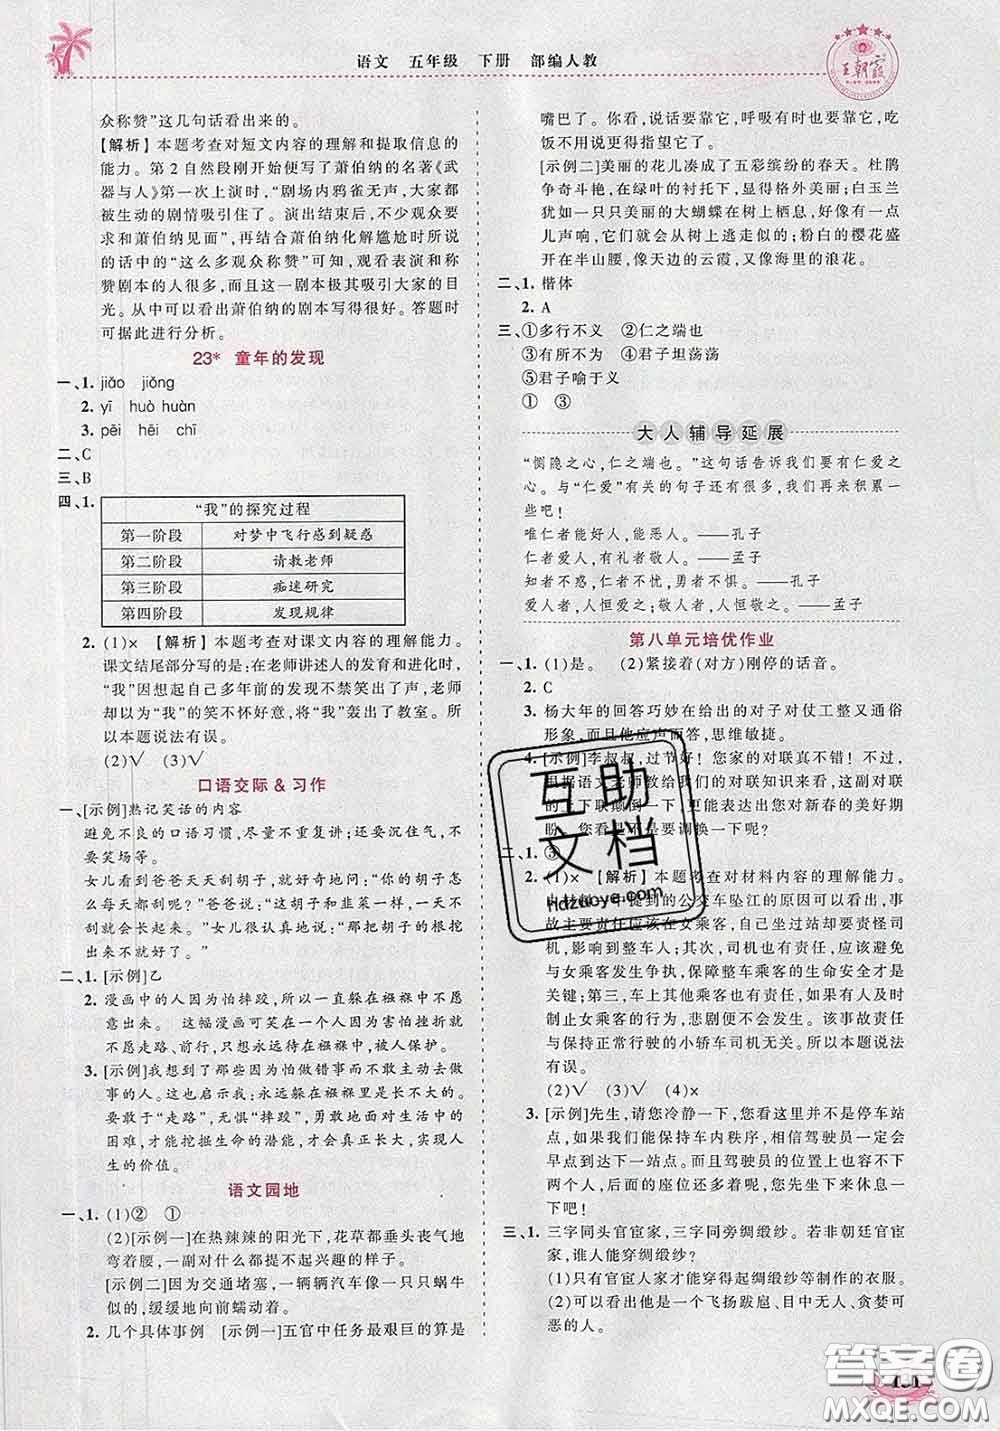 语文 五年级 下册 部编人教
王朝霞
众称赞”这几句话看出来的。
【解析】本题考查对短文内容的理解和提取信息的
能力。第2自然段刚开始便写了萧伯纳的名著《武
器与人》第一次上演时，“剧场内鸦雀无声，大家都
被生动的剧情吸引住了。演出结束后，不少观众要
求和萧伯纳见面”，再结合萧伯纳化解尴尬时所说
的话中的“这么多观众称赞”可知，观看表演和称
赞剧本的人很多，而且这一剧本极其吸引大家的目
光。从中可以看出萧伯纳的剧本写得很好。答题时
可据此进行分析。
23* 童年的发现
一、1. jiāo jiǒng
2. yī huò huàn
3. pēi hēi chī
二、C
三、B
四、1.
“我”的探究过程
第一阶段 对梦中飞行感到疑惑
第二阶段 请教老师
第三阶段 痴迷研究
第四阶段 发现规律
2. (1)× 【解析】本题考查对课文内容的理解能力。
课文结尾部分写的是：在老师讲述人的发育和进化时，
“我”因想起自己多年前的发现不禁笑出了声，老师
却以为“我”的笑不怀好意，将“我”轰出了教室。所
以本题说法有误。
(2)√ (3)√
口语交际 & 习作
一、[示例]熟记笑话的内容
避免不良的口语习惯，尽量不重复讲；还要沉住气，不
要笑场等。
女儿看到爸爸天天刮胡子，就好奇地问：“你的胡子怎
么每天都刮呢？”爸爸说：“这胡子和韭菜一样，一天不
刮就会长起来。”女儿很认真地说：“那把胡子的根挖
出来不就好了。”
二、1. [示例]乙
2. 漫画中的人因为怕摔跤，所以一直躲在襁褓中不愿
意出来。 这幅漫画可笑在一个人因为害怕挫折就
不愿走路、前行，只愿躲在襁褓里，被人保护。
3. [示例]我想到了那些因为怕做错事而不敢主动去做
事的人。这也启示我：永远躲在襁褓里是长不大的，
要敢于“走路”，无惧“摔跤”，勇于面对生活中的
困难，才能挖掘生命的潜能，才能真正长大，实现人
生的价值。
语文园地
一、1. (1)② ①
(2)[示例一]在热辣辣的阳光下，花草都垂头丧气地
弯着腰，一副对什么都提不起兴趣的样子。
[示例二]因为交通堵塞，一辆辆汽车像一只只蜗牛
似的，缓缓地向前蠕动着。
2. 几个具体事例 [示例一]五官中任务最艰巨的算是
嘴巴了。你看，说话要靠它，呼吸有时也要靠它，吃
饭不用说更得指望它了。
[示例二]美丽的花儿凑成了五彩缤纷的春天。杜鹃
争奇斗艳，在绿叶的衬托下，显得格外美丽；白玉兰
犹如一只只美丽的大蝴蝶在树上栖息，好像有一点
儿声响，它们就会从树上逃走似的；粉白的樱花盛
开在半山腰，像天边的云霞，又像海里的浪花。
二、1. 楷体
2. A
三、①多行不义 ②仁之端也
③有所不为 ④君子坦荡荡
⑤君子喻于义
① ③
大人辅导延展
“恻隐之心，仁之端也。”这句话告诉我们要有仁爱之
心。与“仁爱”有关的句子还有很多，我们再来积累一
些吧！
唯仁者能好人，能恶人。——孔子
仁者爱人，有礼者敬人。——孟子
知者不惑，仁者不忧，勇者不惧。——孔子
爱人者，人恒爱之；敬人者，人恒敬之。——孟子
第八单元培优作业
一、1. (1)是。 (2)紧接着(对方)刚停的话音。
2. C
3. 杨大年的回答巧妙在给出的对子对仗工整又通俗
形象，而且他应声而答，思维敏捷。
4. [示例]李叔叔，过节好！您家的对联真不错！不过，
根据语文老师教给我们的对联知识来看，这副对联
的上下联颠倒一下，更能寄托您对新春的美好期
盼。您看是不是要调换一下呢？
二、1. ③
2. (1)× 【解析】本题考查对材料内容的理解能力。
提到的公交车坠江的原因可以看出，事
故主要责任应该在女乘客，自己坐过站却要责怪司
机，影响到整车人；其次，司机也有责任，应该避免
与女乘客发生争执，保障整车乘客的生命安全才是
关键；第三，车上其他乘客也有责任，如果他们及时
制止女乘客的行为，悲剧便不会发生。该事故责任
与保持正常行驶的小轿车司机无关。所以本题说法
有误。
(2)√ (3)√ (4)×
3. [示例]先生，请您冷静一下，您看这里并不是停车站
点，如果我们能保持车内秩序，相信驾驶员一定会
早点到达下一站点。我们与驾驶员吵闹不仅会影响
他的心情，甚至会造成交通事故，给大家带来危险。
前面的座位与设施都很好，您先坐下来休息一
下吧！
三、1. 三字同头官宦家，三字同旁绸缎纱。若非朝廷官宦
家，谁人能穿绸缎纱？
(1)只有官宦人家才能穿得起绸缎纱等制作的衣服。
(2)可以看出他是一个飞扬跋扈、目中无人、贪婪可
恶的官宦。
互助文档
hdzuoye.com
答案圈
MXQE.COM